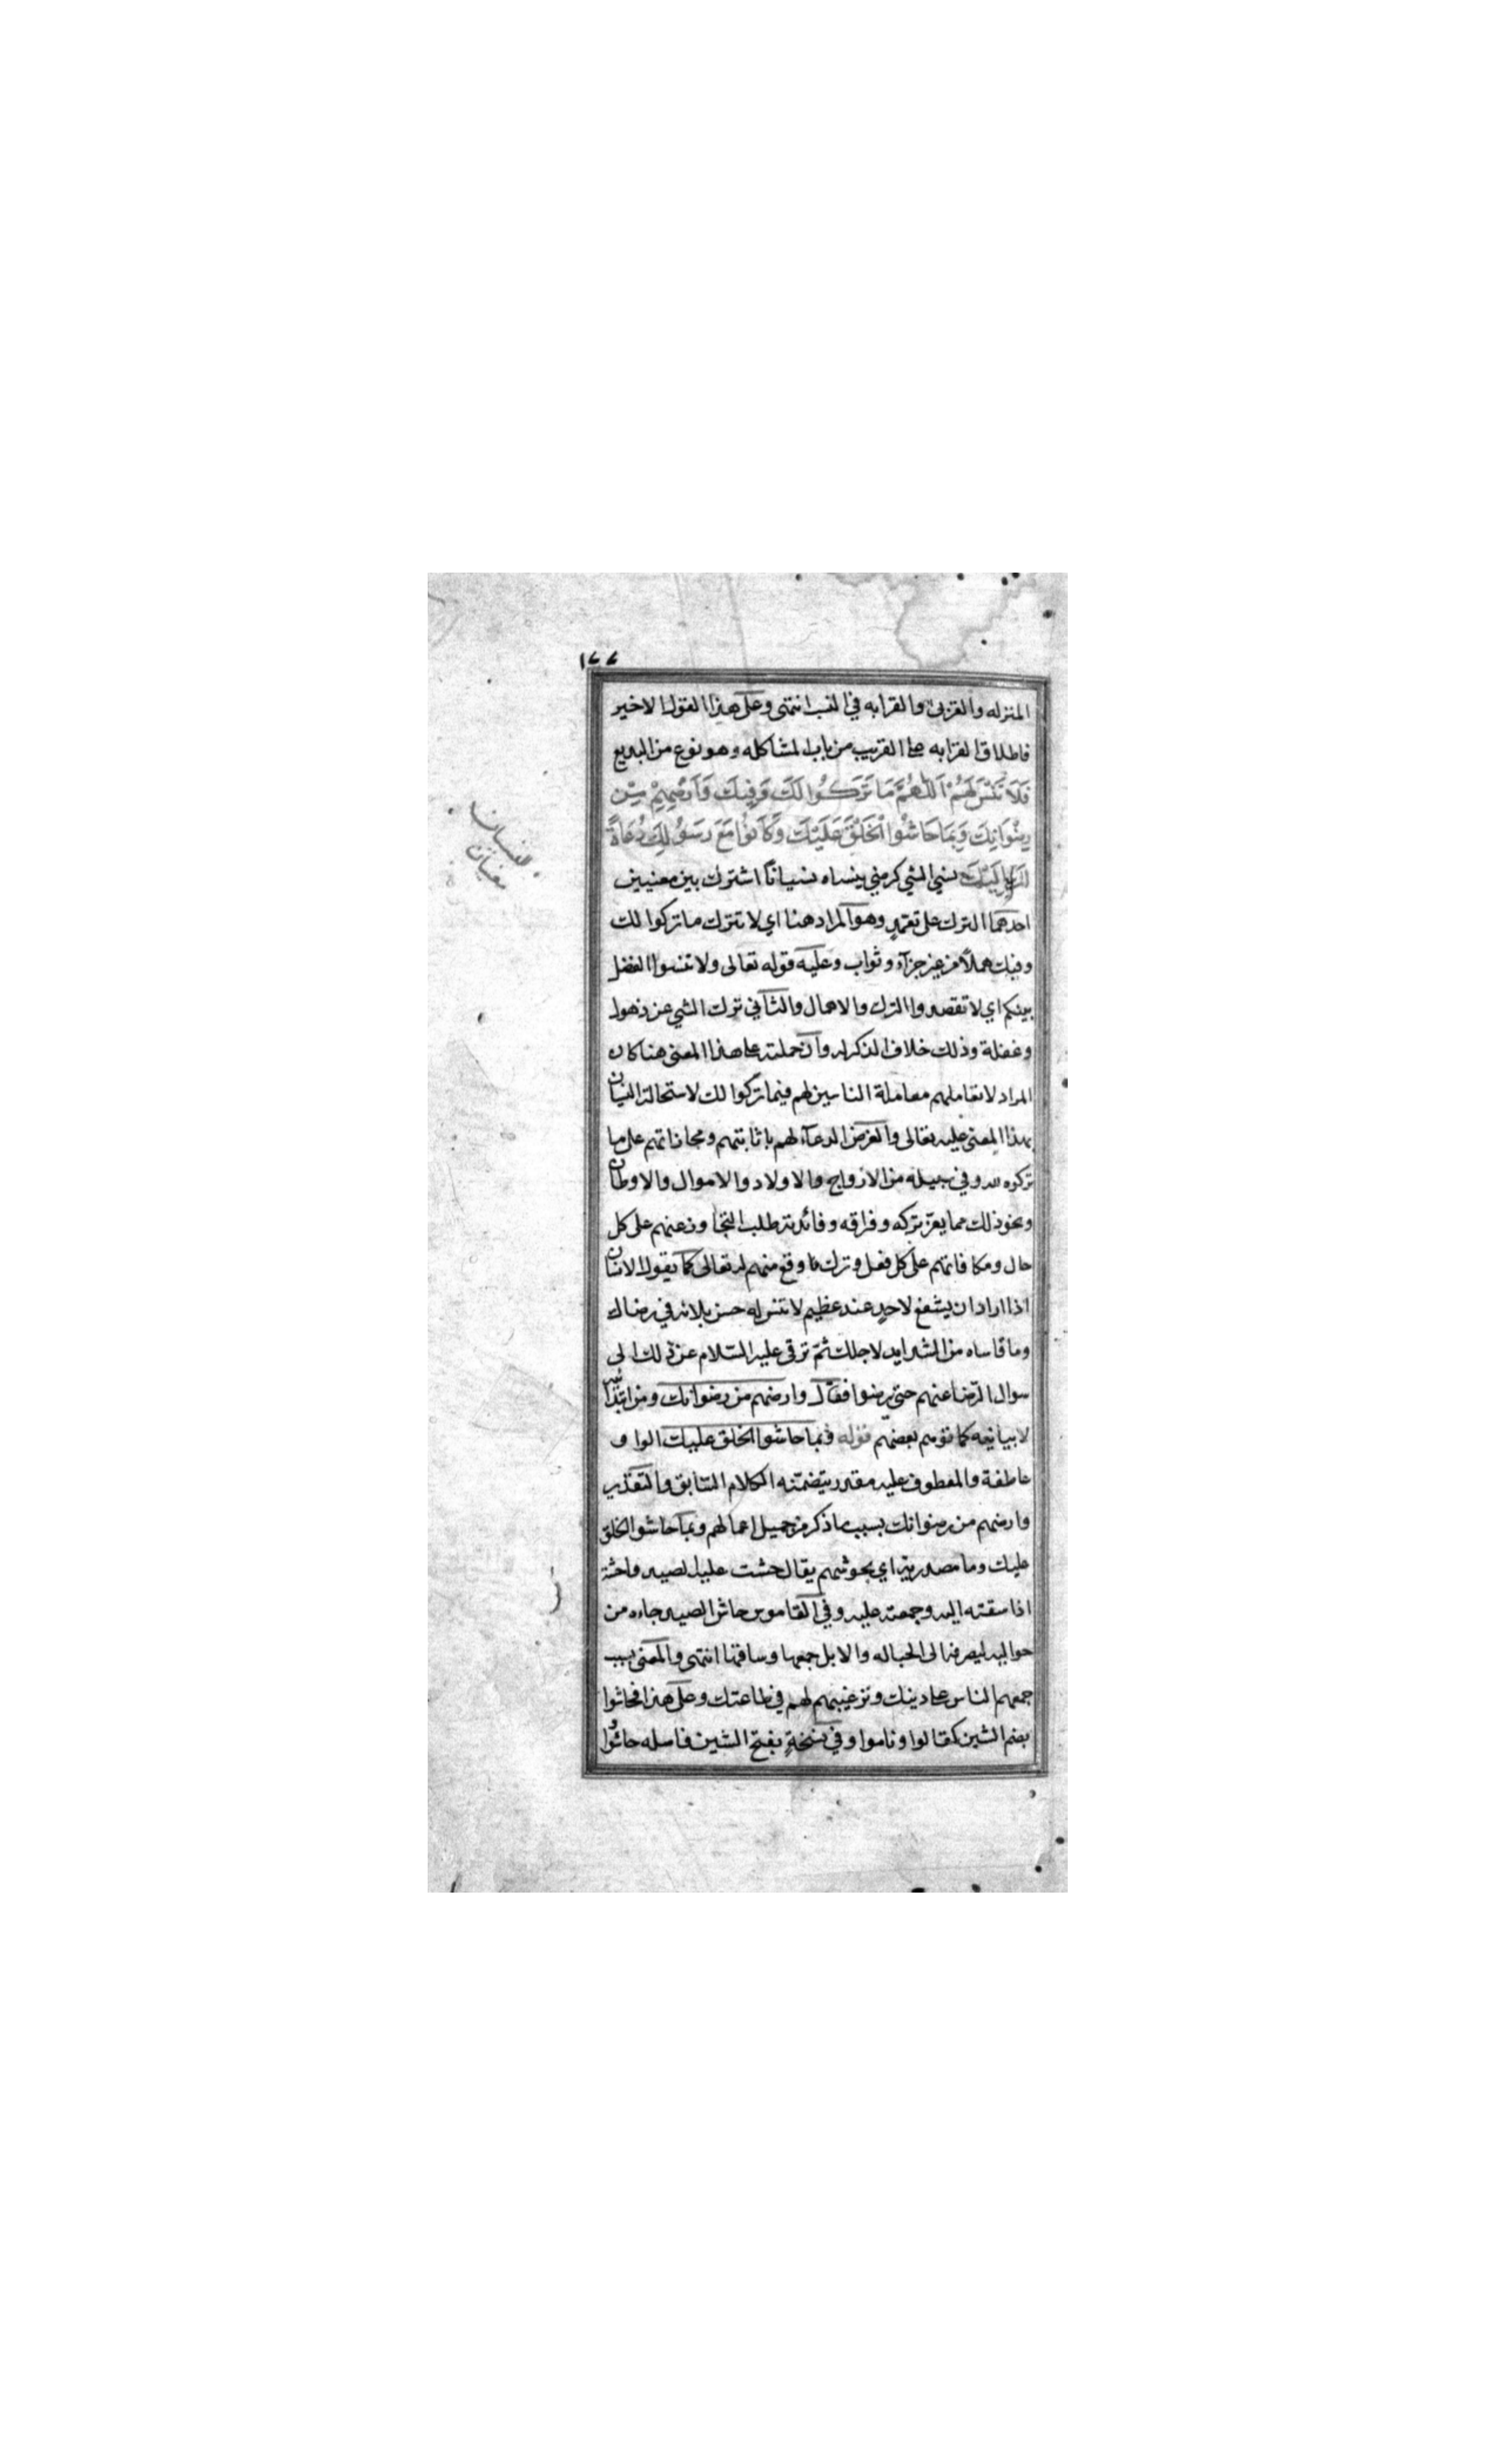 ١٧٧
المنزله والقربى والقرابه في النسب انتهى وعلى هذا القول الاخير
فاطلاق القرابه على القريب من باب المشاكله وهو نوع من البديع
فَلَا تَنْسَ لَهُمُ اَللّٰهُمَّ مَا تَرَكُوا لَكَ وَفِيكَ وَاَرْضِهِمْ مِنْ
رِضْوَانِكَ وَبِمَا حَاشُوا الْخَلْقَ عَلَيْكَ وَكَانُوا مَعَ رَسُولِكَ دُعَاةً
لَكَ اِلَيْكَ نسي الشي كرضي ينساه نسياناً اشترك بين معنيين
احدهما الترك على تعمد وهو المراد هنا اي لا تترك ما تركوا لك
وفيك هملاً من غير جزآء وثواب وعليه قوله تعالى ولا تنسوا الفضل
بينكم اي لا تقصدوا الترك والاهمال والثاني ترك الشي عن ذهول
وغفلة وذلك خلاف الذكر له وان حملته على هذا المعنى هنا كان
المراد لا تعاملهم معاملة الناسين لهم فيما تركوا لك لاستحالة النسيان
بهذا المعنى عليه تعالى والغرض الدعآء لهم باثابتهم ومجازاتهم على ما
تركوه لله وفي سبيله من الازواج والاولاد والاموال والاوطان
ونحو ذلك مما يعز تركه وفراقه وفائدته طلب التجاوز عنهم على كل
حال ومكافاتهم على كل فعل وترك ما وقع منهم له تعالى كما يقول الانسان
اذا اراد ان يشفع لاحدٍ عند عظيم لا تنس له حسن بلائه في رضاك
وما قاساه من الشدايد لاجلك ثمّ ترقى عليه السّلام عن ذلك الى
سوال الرّضا عنهم حتى يرضوا فقال وارضهم من رضوانك ومن ابتدائيه
لا بيانيه كما توهم بعضهم قوله وبما حاشوا الخلق عليك الواو
عاطفة والمعطوف عليه مقدر يتضمّنه الكلام السّابق والتقدير
وارضهم من رضوانك بسبب ما ذكر من جميل اعمالهم وبما حاشوا الخلق
عليك وما مصدرية اي بحوشهم يقال حشت عليه الصيد واحشته
اذا سقته اليه وجمعته عليه وفي القاموس حاش الصيد جاءه من
حواليه ليصرفه الى الحباله والابل جمعها وساقها انتهى والمعنى بسبب
جمعهم الناس على دينك وترغيبهم لهم في طاعتك وعلى هذا فحاشوا
بضم الشين كقالوا وناموا وفي نسخةٍ بفتح الشين فاصله حاشوا
النسيان
معنيان